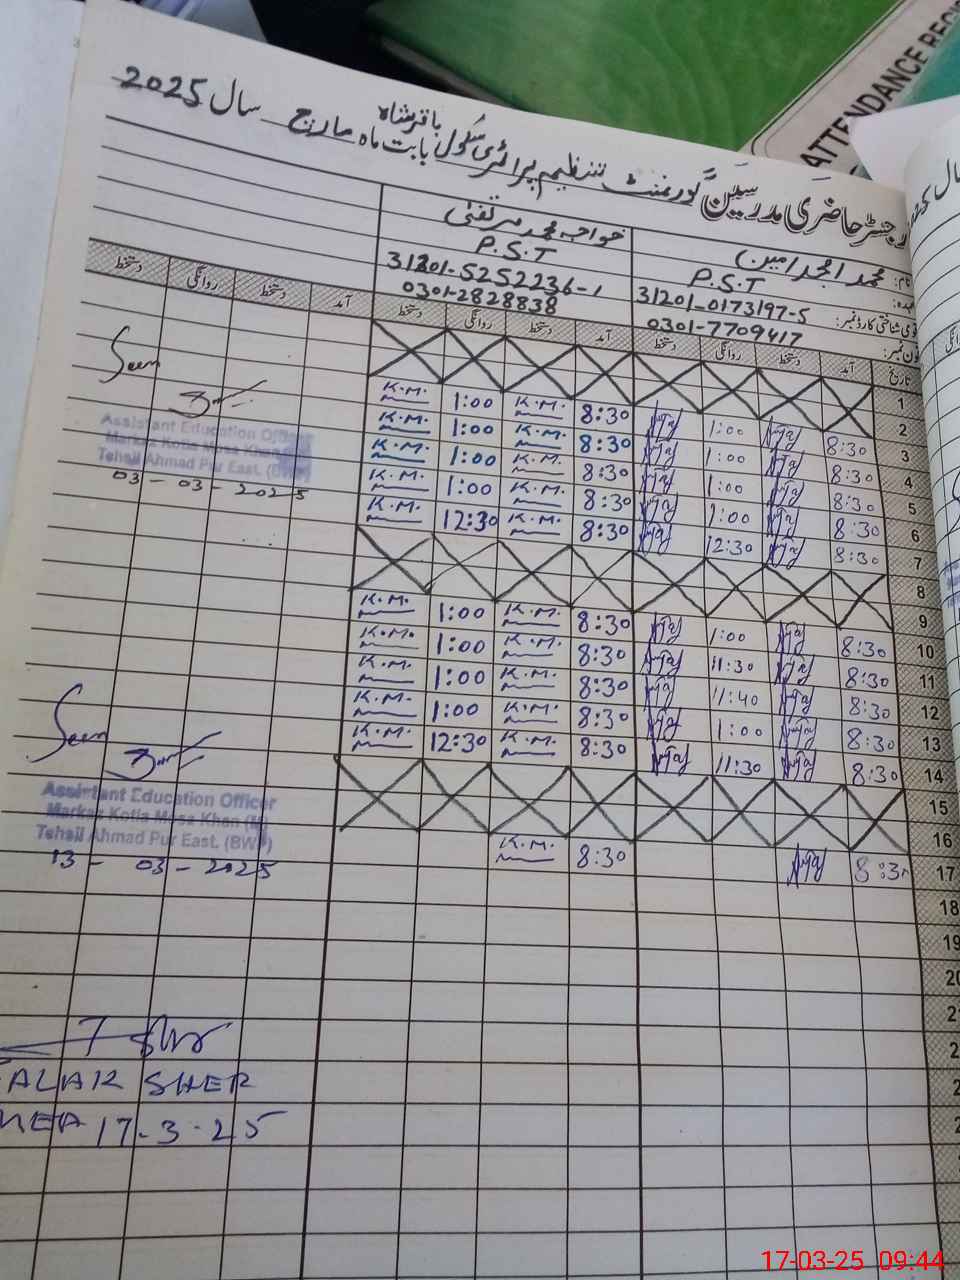 ATTENDANCE REG
رجسٹر حاضری مدرسین گورنمنٹ تنظیم پرائمری سکول باقر شاہ بابت ماہ مارچ سال 2025
نام: محمد امجد امین خواجہ محمد مرتضیٰ
عہدہ: P.S.T P.S.T
قومی شناختی کارڈ نمبر: 31201-0173197-5 31201-5252236-1
فون نمبر: 0301-7709417 0301-2828838
تاریخ آمد دستخط روانگی دستخط آمد دستخط روانگی دستخط آمد دستخط روانگی دستخط
1
2
3 8:30 1:00 8:30 K.M. 1:00 K.M.
4 8:30 1:00 8:30 K.M. 1:00 K.M.
5 8:30 1:00 8:30 K.M. 1:00 K.M.
6 8:30 1:00 8:30 K.M. 1:00 K.M.
7 8:30 12:30 8:30 K.M. 12:30 K.M.
8
9
10 8:30 1:00 8:30 K.M. 1:00 K.M.
11 8:30 11:30 8:30 K.M. 1:00 K.M.
12 8:30 11:40 8:30 K.M. 1:00 K.M.
13 8:30 1:00 8:30 K.M. 1:00 K.M.
14 8:30 11:30 8:30 K.M. 12:30 K.M.
15
16
17 8:30 8:30 K.M.
18
19
20
Seen
Assistant Education Officer
Markaz Kotla Musa Khan
Tehsil Ahmad Pur East. (BWP)
03-03-2025
Seen
Assistant Education Officer
Markaz Kotla Musa Khan (M)
Tehsil Ahmad Pur East. (BWP)
13-03-2025
FALAK SHER
MEA 17-3-25
17-03-25 09:44